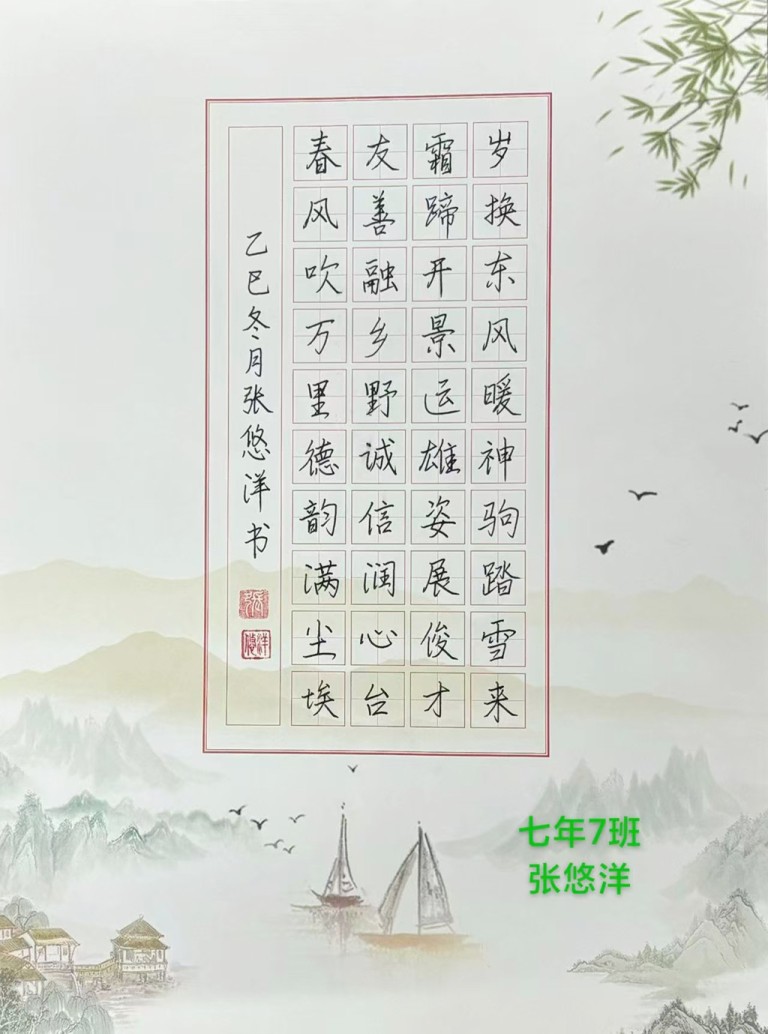 岁换东风暖神驹踏雪来
霜蹄开景运雄姿展俊才
友善融乡野诚信润心台
春风吹万里德韵满尘埃
乙巳冬月张悠洋书
張
悠洋
七年7班
张悠洋